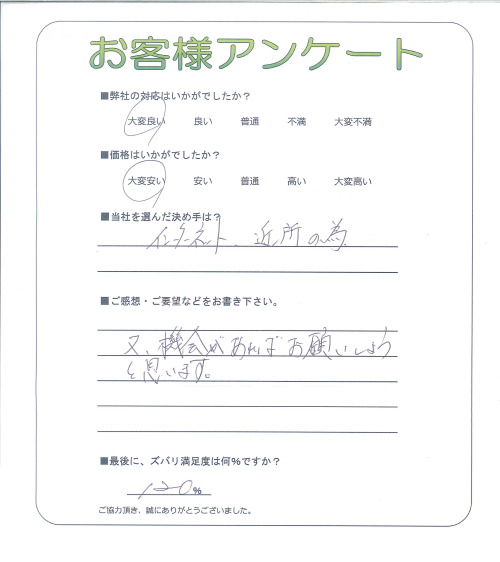 お客様アンケート
■弊社の対応はいかがでしたか？
大変良い 良い 普通 不満 大変不満
■価格はいかがでしたか？
大変安い 安い 普通 高い 大変高い
■当社を選んだ決め手は？
インターネット、近所の為
■ご感想・ご要望などをお書き下さい。
又、機会があればお願いしよう
と思います。
■最後に、ズバリ満足度は何%ですか？
120%
ご協力頂き、誠にありがとうございました。